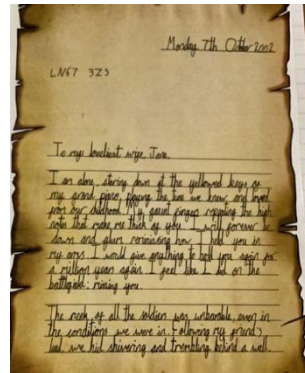 Monday 7th October 2002
LN67 3Z3
To my loveliest wife, Jane,
I am alone, staring down at the yellowed keys of
my grand piano, playing the tune we knew and loved
from our childhood. My fingers rippling the high
notes that make me think of you. I will forever be
down and glum reminiscing how I had you in
my arms. I would give anything to hold you again for
a million years again. I feel like I did on the
battlefield: missing you.
The reek of all the soldiers was unbearable, even in
the conditions we were in. Following my friend's
lead, we hid shivering and trembling behind a wall.